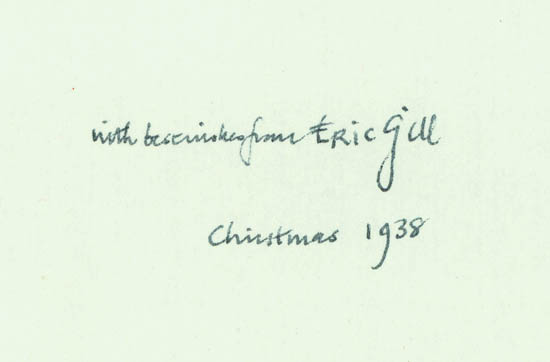 with best wishes from Eric Gill
Christmas 1938